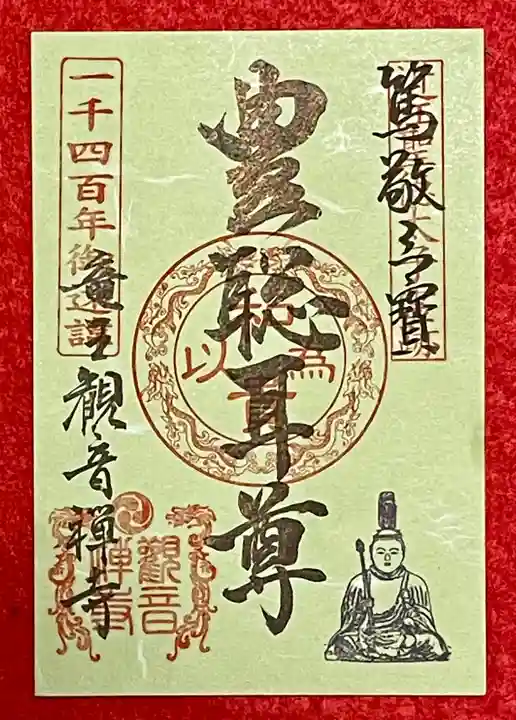 篤敬三寳
豊聡耳尊
以和為貴
一千四百年御遠諱
竜王 觀音禅寺
觀音禅寺